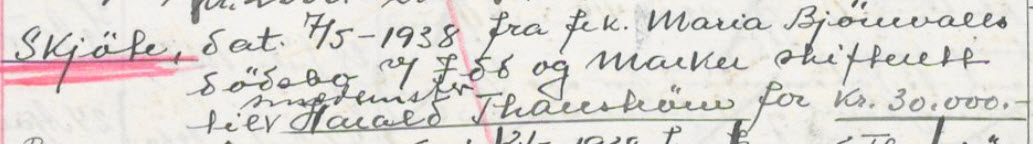 Skjöte, dat. 7/5-1938 fra frk. Maria Björnvalls
dödsbo v/ Idd og Marker skifterett
smedemstr
til Harald Thanström for kr. 30.000.-